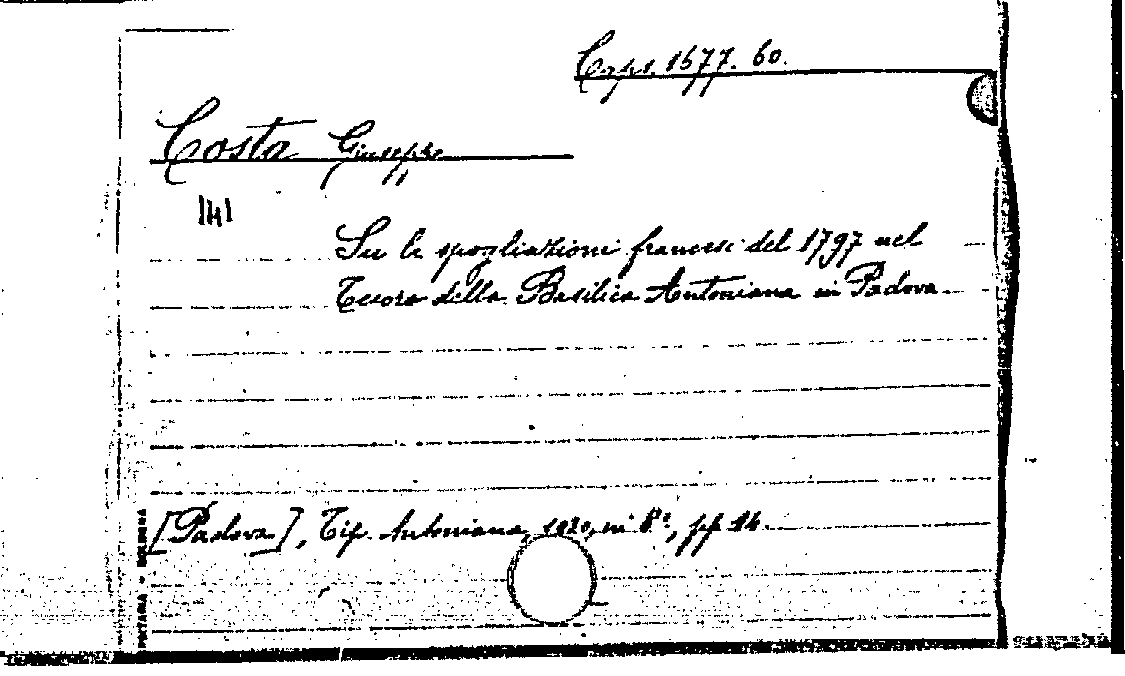 Caps. 1677. 60.
Costa Giuseppe
141
Su le spogliazioni francesi del 1797 nel
Tesoro della Basilica Antoniana in Padova
[Padova], Tip. Antoniana, in 8°, pp 14.